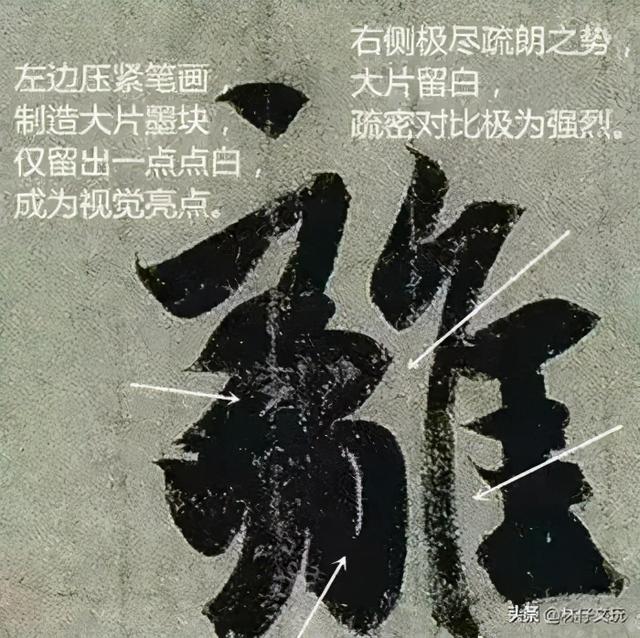 左边压紧笔画
制造大片墨块，
仅留出一点点白，
成为视觉亮点。
右侧极尽疏朗之势，
大片留白，
疏密对比极为强烈。
头条 @杯仔文玩